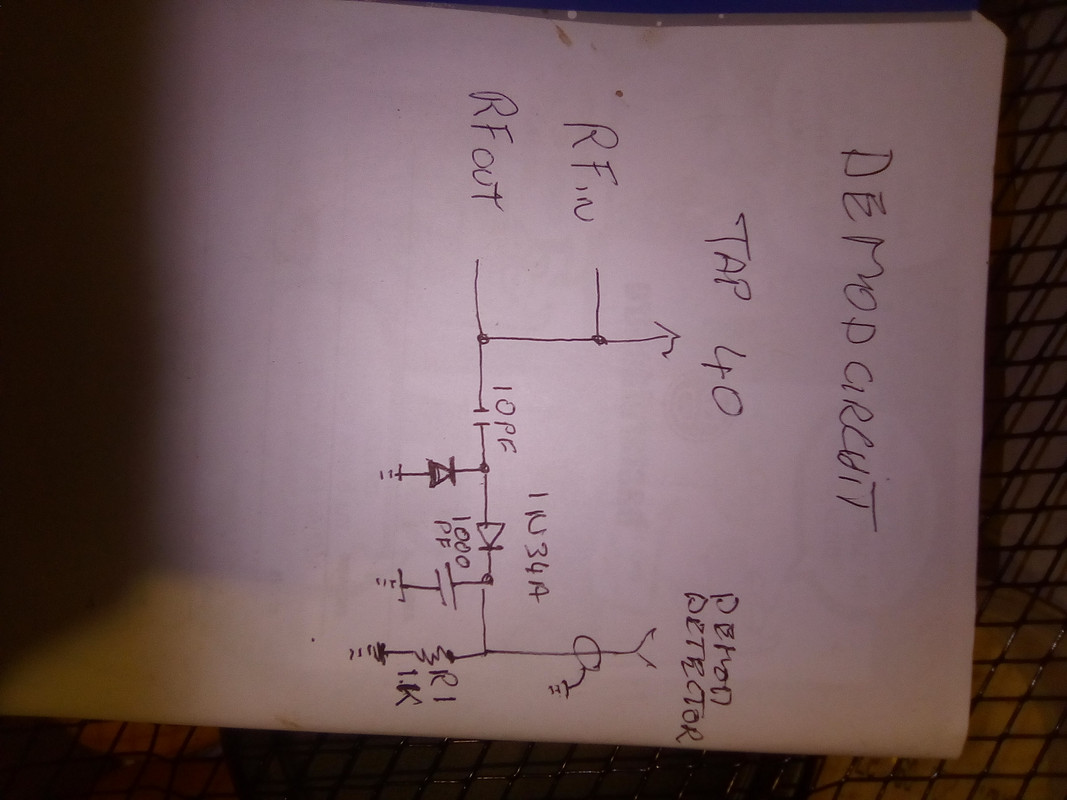 DEMOD CIRCUIT
TAP 40
RF in
RF out
10PF
1N34A
1000
PF
R1
1.1K
DEMOD
DETECTOR